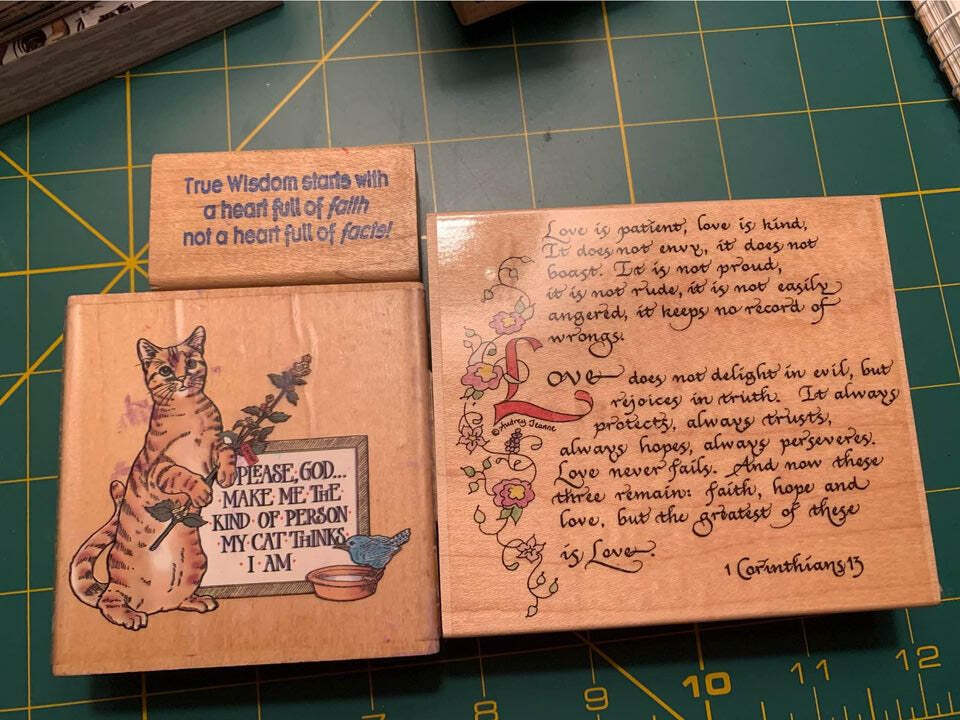 True Wisdom starts with
a heart full of faith
not a heart full of facts!
PLEASE, GOD...
MAKE ME THE
KIND OF PERSON
MY CAT THINKS
I AM
Love is patient, love is kind,
It does not envy, it does not
boast. It is not proud,
it is not rude, it is not easily
angered, it keeps no record of
wrongs.
Love does not delight in evil, but
rejoices in truth. It always
protects, always trusts,
always hopes, always perseveres.
Love never fails. And now these
three remain: faith, hope and
love, but the greatest of these
is Love.
1 Corinthians 13
© Audrey Jeanne
7 8 9 10 11 12